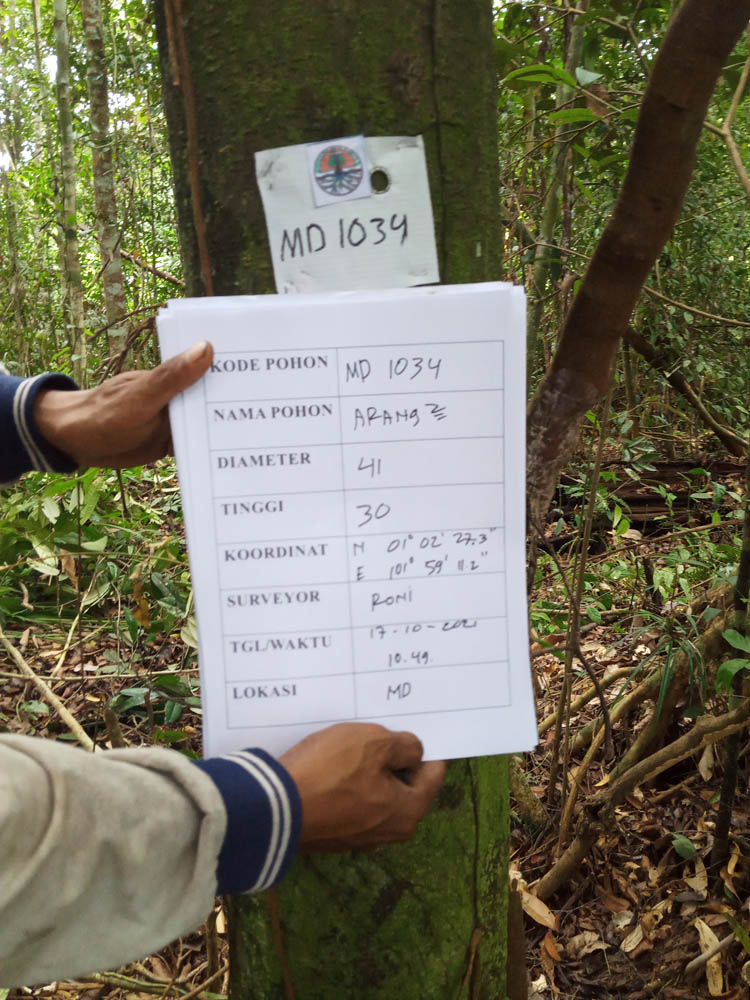 MD 1034
KODE POHON MD 1034
NAMA POHON ARANG²
DIAMETER 41
TINGGI 30
KOORDINAT N 01° 02' 27.3"
E 101° 59' 11.2"
SURVEYOR RONi
TGL/WAKTU 17-10-2021
10.49.
LOKASI MD